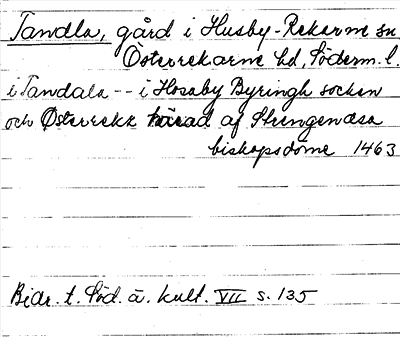 Tandla, gård i Husby-Rekarne sn
Österrekarne hd, Söderm. l.
i Tandala -- i Hosaby Byringh socken
och Østerrekx härad af Strengenæsa
biskopsdöme 1463
Bidr. t. Söd. ä. kult. VII s. 135